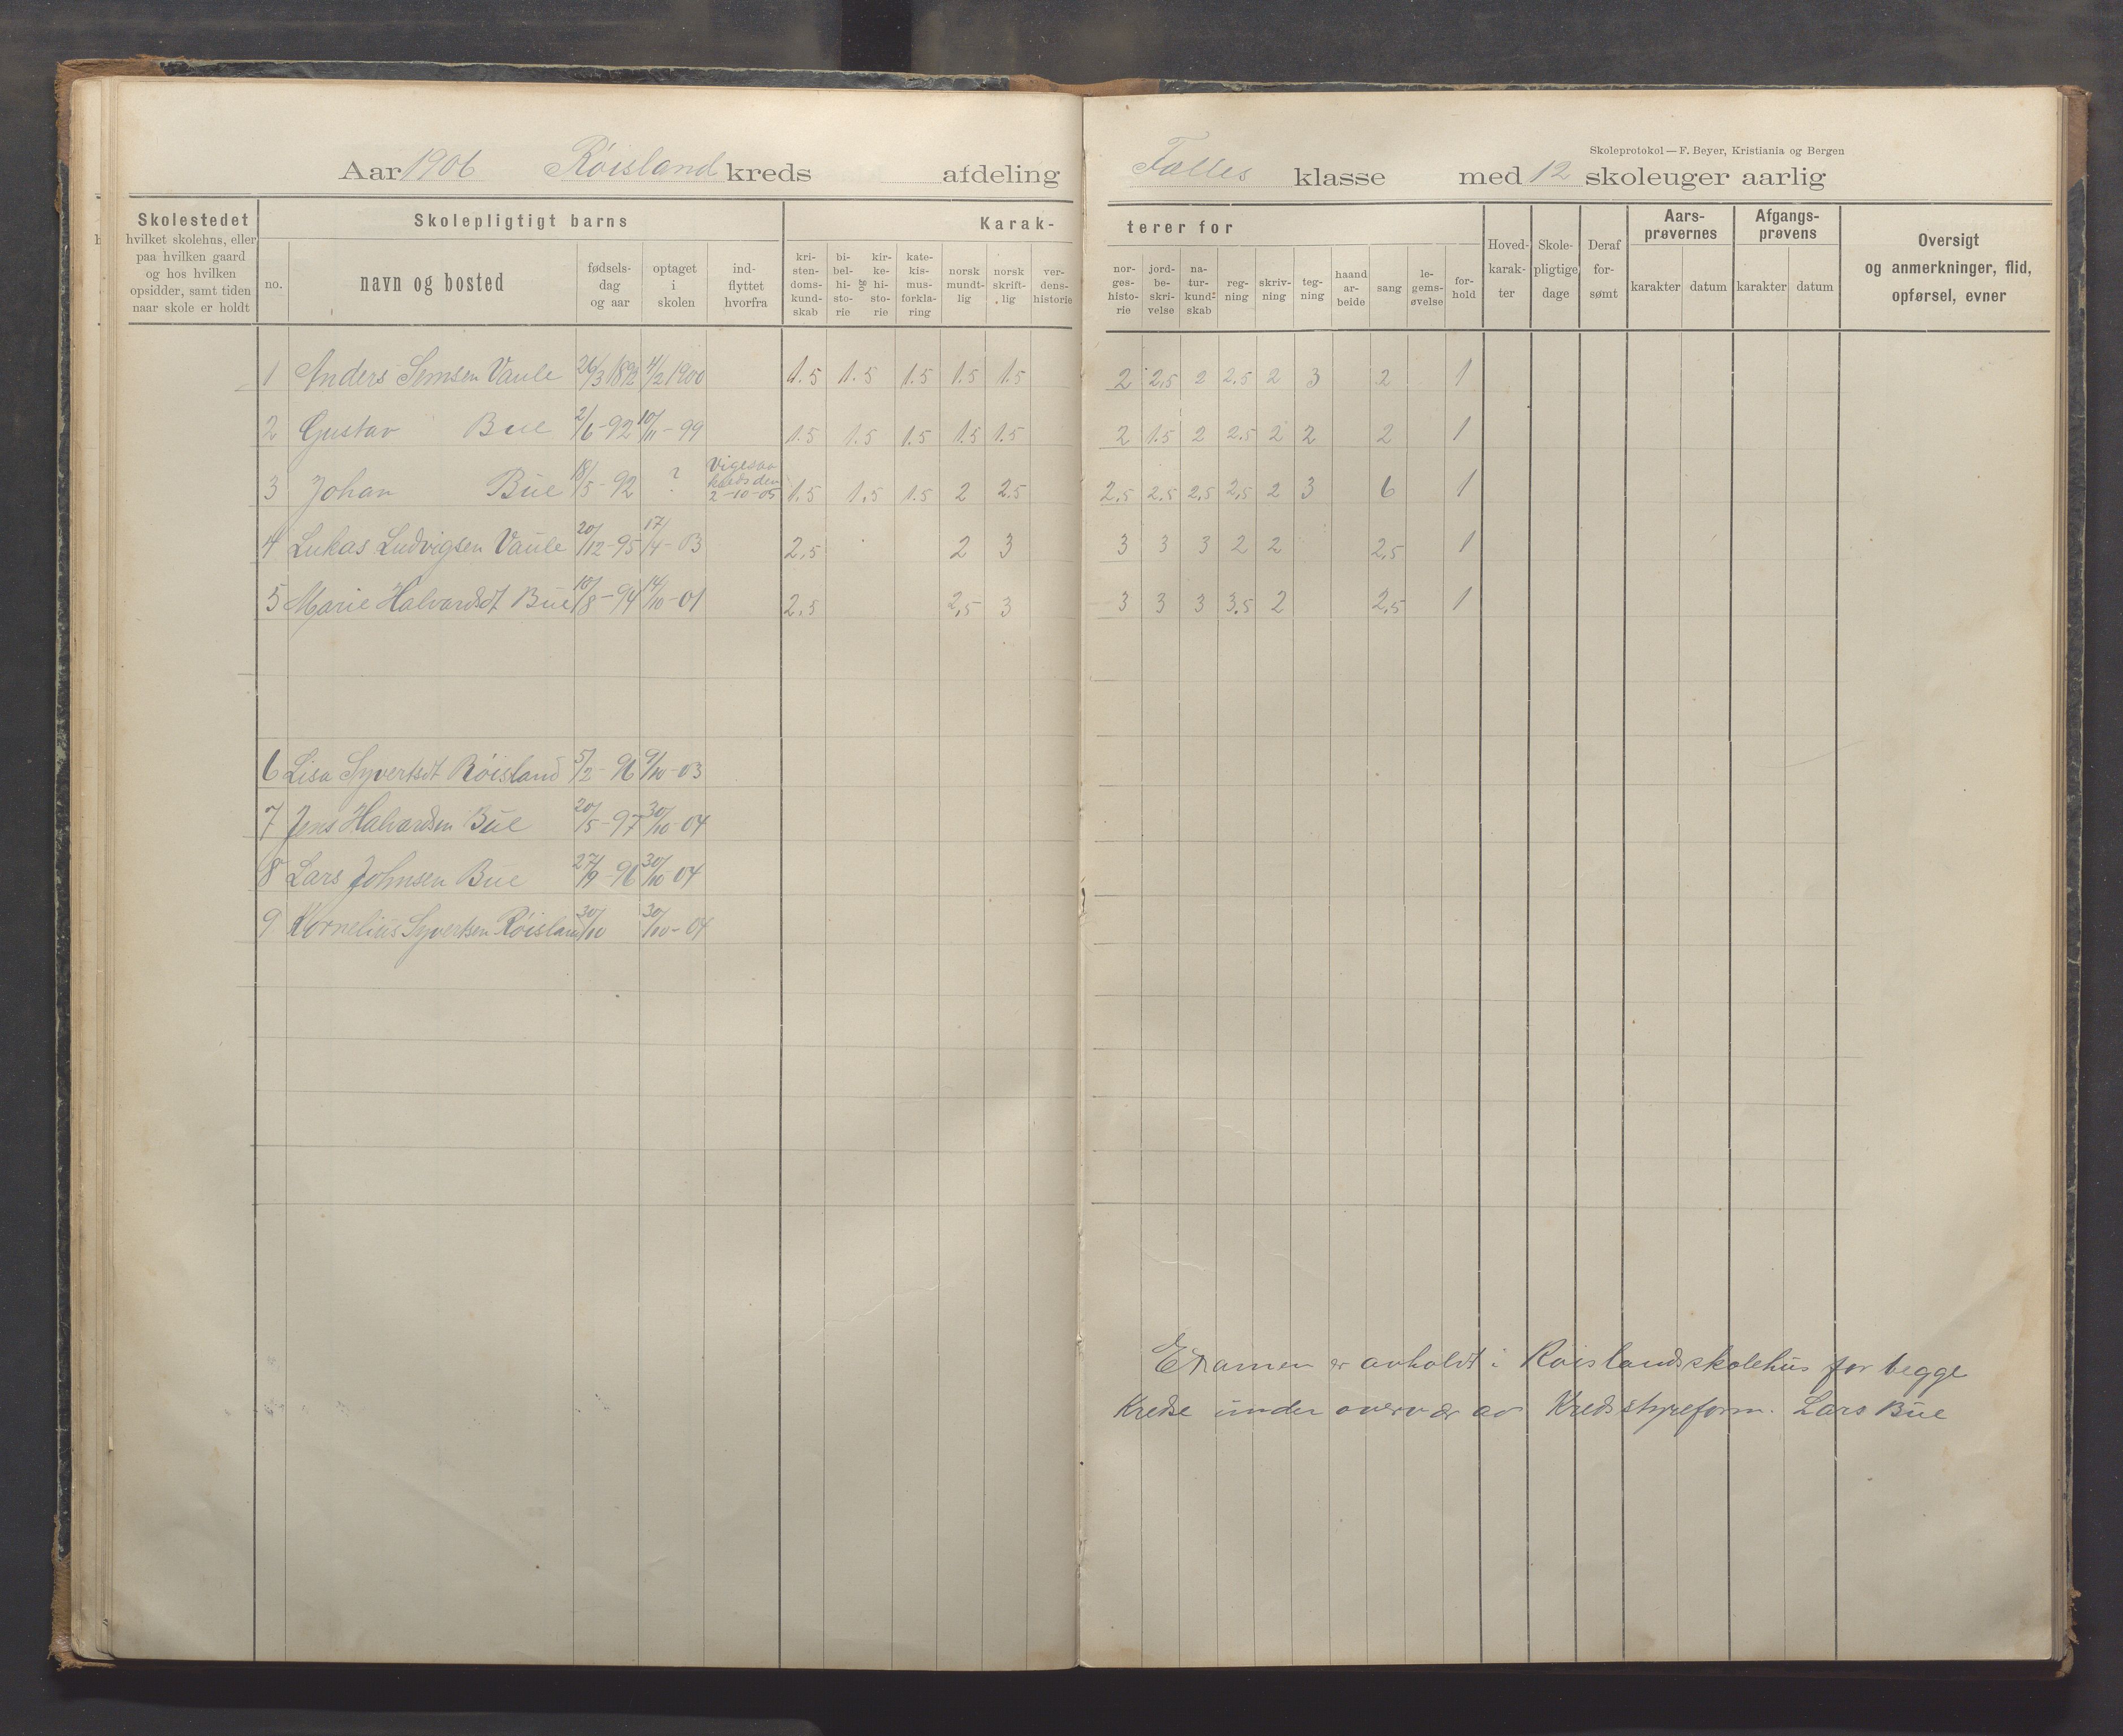 Skoleprotokol — F. Beyer, Kristiania og Bergen
Aar 1906 Røisland kreds afdeling Fælles klasse med 12 skoleuger aarlig
Skolestedet
hvilket skolehus, eller
paa hvilken gaard
og hos hvilken
opsidder, samt tiden
naar skole er holdt
Skolepligtigt barns
no.
navn og bosted
fødsels-
dag
og aar
optaget
i
skolen
ind-
flyttet
hvorfra
Karak-
kri-
sten-
doms-
kund-
skab
bi-
bel-
hi-
sto-
rie
og
kir-
ke-
hi-
sto-
rie
kate-
kis-
mus-
forkla-
ring
norsk
mundt-
lig
norsk
skrift-
lig
ver-
dens-
historie
terer for
nor-
ges-
histo-
rie
jord-
be-
skri-
velse
na-
tur-
kund-
skab
reg-
ning
skriv-
ning
teg-
ning
haand
ar-
beide
sang
le-
gems-
øvelse
for-
hold
Hoved-
karak-
ter
Skole-
pligtige
dage
Deraf
for-
sømt
Aars-
prøvernes
karakter datum
Afgangs-
prøvens
karakter datum
Oversigt
og anmerkninger, flid,
opførsel, evner
1 Anders Simsen Vaule 26/3 1892 4/2 1900 1.5 1.5 1.5 1.5 1.5 2 2,5 2 2,5 2 3 2 1
2 Gustav Bue 2/6-92 10/11-99 1.5 1.5 1.5 1.5 1.5 2 1.5 2 2.5 2 2 2 1
3 Johan Bue 18/5-92 ? 2-10-05 1.5 1.5 1.5 2 2.5 2,5 2.5 2,5 2,5 2 3 6 1
4 Lukas Ludvigsen Vaule 20/12-95 17/4-03 2,5 2 3 3 3 3 2 2 2,5 1
5 Marie Halvardsdt Bue 10/8-94 14/10-01 2,5 2,5 3 3 3 3 3.5 2 2,5 1
6 Lisa Syvertsdt Røisland 5/2-96 9/10-03
7 Jens Halvardsen Bue 20/5-97 30/10-04
8 Lars Johnsen Bue 27/9-96 30/10-04
9 Kornelius Syvertsen Røisland 30/10 30/10-04
Examen er avholdt i Røislandskolehus for begge
Kredse under overvær av Kredsstyreform. Lars Bue